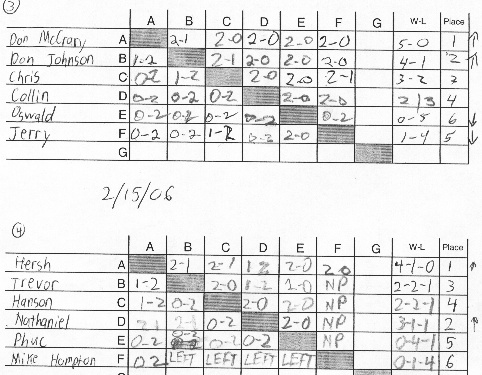 ③
A B C D E F G W-L Place
Don McCrary A 2-1 2-0 2-0 2-0 2-0 5-0 1 ↑
Don Johnson B 1-2 2-1 2-0 2-0 2-0 4-1 2 ↑
Chris C 0-2 1-2 2-0 2-0 2-1 3-2 3
Collin D 0-2 0-2 0-2 2-0 2-0 2/3 4
Oswald E 0-2 0-2 0-2 0-2 0-2 0-5 6 ↓
Jerry F 0-2 0-2 1-2 0-2 2-0 1-4 5 ↓
G
2/15/06
④
A B C D E F G W-L Place
Hersh A 2-1 2-1 1 2 2-0 2 0 4-1-0 1 ↑
Trevor B 1-2 2-0 1-2 2-0 NP 2-2-1 3
Hanson C 1-2 0-2 2-0 2-0 NP 2-2-1 4
Nathaniel D 0-2 2-0 NP 3-1-1 2 ↑
Phuc E 0-2 0-2 0-2 0-2 NP 0-4-1 5
Mike Hampton F 0 2 LEFT LEFT LEFT LEFT 0-1-4 6